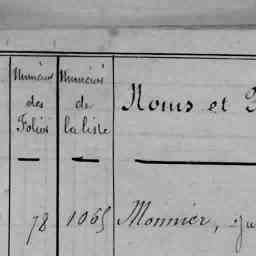 Numéros des Folios
Numéros de la liste
Noms et
78 1065 Monnier,